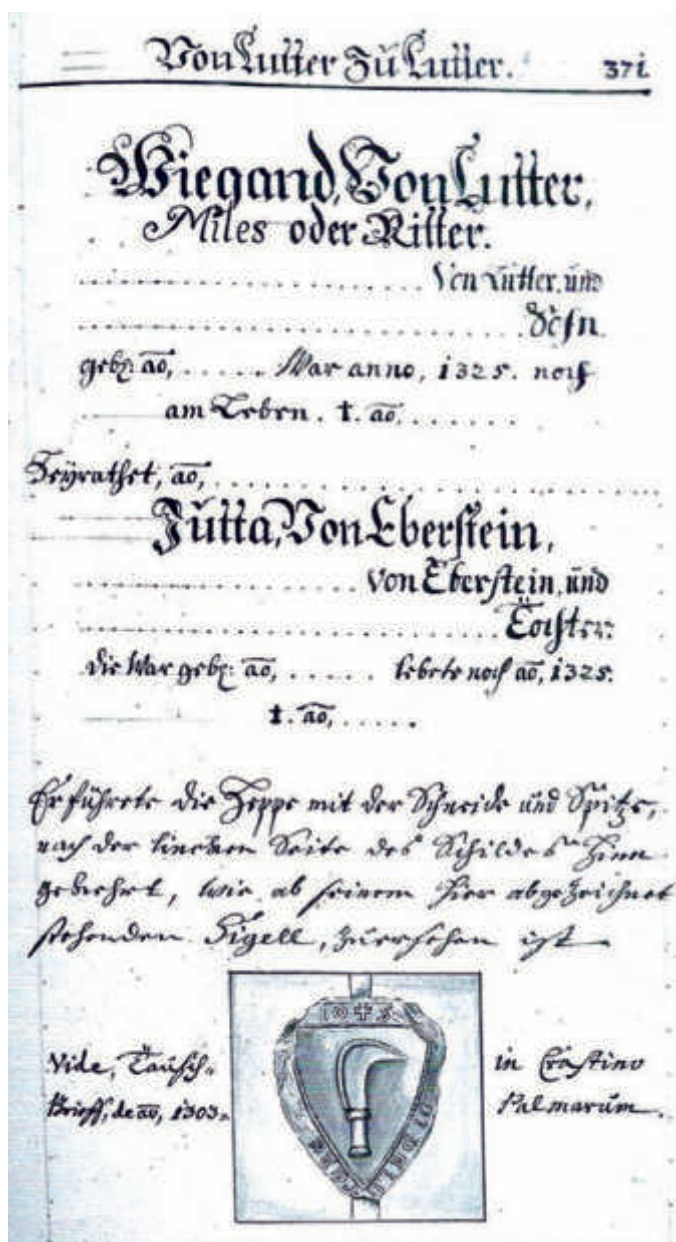 Von Lutter Zu Lutter. 371.
Wiegand, Von Lutter,
Miles oder Ritter.
Von Lutter, und
Sohn.
geb: ao, ...... War anno, 1325. noch
am Leben. †. ao, .......
Heÿrathet, ao, ..............
Jutta, Von Eberstein,
von Eberstein, und
Tochter.
die War geb: ao, ...... lebete noch ao, 1325.
†. ao, .....
Er führete die Heppe mit der Schneide und Spitze,
nach der lincken Seite des Schildes hinn
gekehrt, wie ab seinem hier abgezeichnet
stehenden Sigell, zuersehen ist
Vide, Tausch-
Brieff, de ao, 1303.
in Crastino
Palmarum.